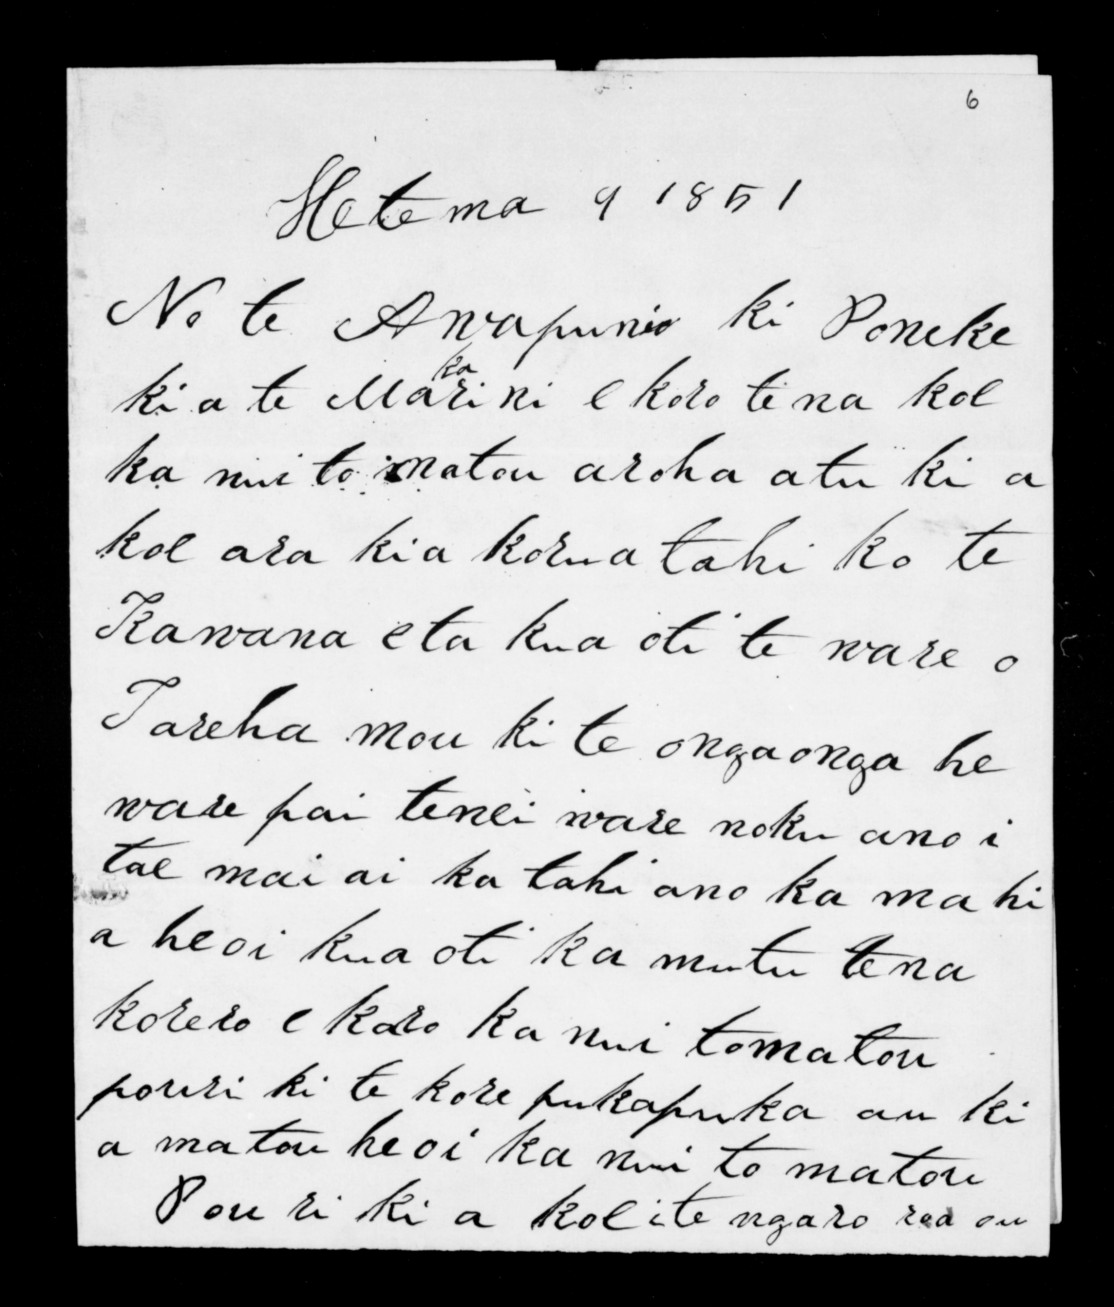 6
Hetema 9 1851
No te Awapunio ki Poneke
ki a te Makarini e koro te na koe
ka nui to matou aroha atu ki a
koe ara kia korua tahi ko te
Kawana eta kua oti te ware o
Tareha mou ki te ongaonga he
ware pai tenei ware noku ano i
tae mai ai ka tahi ano ka ma hi
a heoi kua oti ka mutu tena
korero e koro ka nui tomatou
pouri ki te kore pukapuka au ki
a matou heoi ka nui to matou
Pou ri ki a koe i te ngaro roa ou